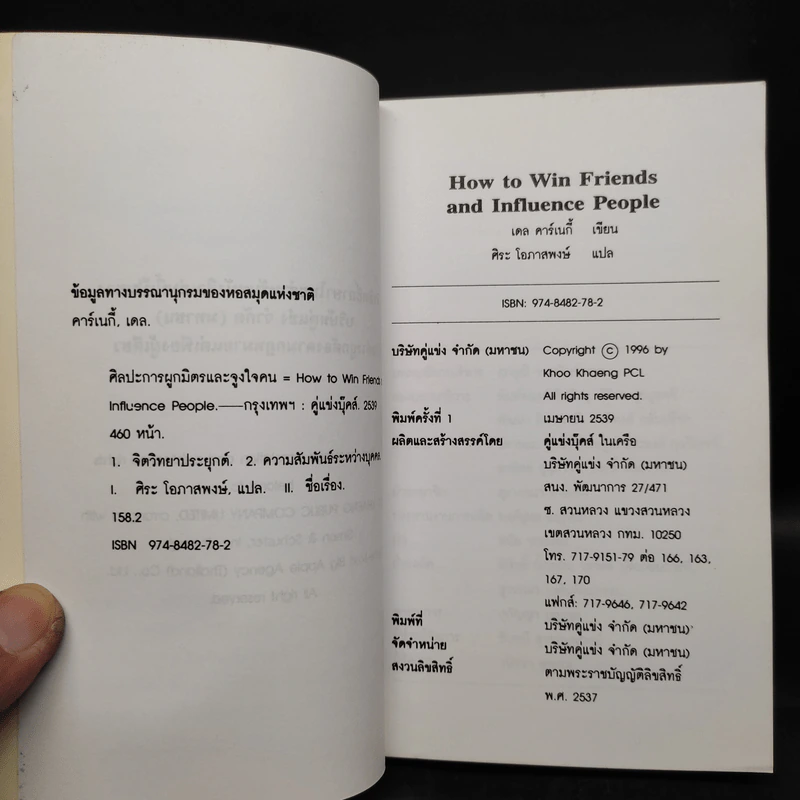 ข้อมูลทางบรรณานุกรมของหอสมุดแห่งชาติ
คาร์เนกี้, เดล.
ศิลปะการผูกมิตรและจูงใจคน = How to Win Friend
Influence People.——กรุงเทพฯ : คู่แข่งบุ๊คส์. 2539
460 หน้า.
1. จิตวิทยาประยุกต์. 2. ความสัมพันธ์ระหว่างบุคคล.
I. ศิระ โอภาสพงษ์, แปล. II. ชื่อเรื่อง.
158.2
ISBN 974-8482-78-2
How to Win Friends
and Influence People
เดล คาร์เนกี้ เขียน
ศิระ โอภาสพงษ์ แปล
ISBN: 974-8482-78-2
บริษัทคู่แข่ง จำกัด (มหาชน) Copyright © 1996 by
Khoo Khaeng PCL
All rights reserved.
พิมพ์ครั้งที่ 1 เมษายน 2539
ผลิตและสร้างสรรค์โดย คู่แข่งบุ๊คส์ ในเครือ
บริษัทคู่แข่ง จำกัด (มหาชน)
สนง. พัฒนาการ 27/471
ซ. สวนหลวง แขวงสวนหลวง
เขตสวนหลวง กทม. 10250
โทร. 717-9151-79 ต่อ 166, 163,
167, 170
แฟกส์: 717-9646, 717-9642
พิมพ์ที่ บริษัทคู่แข่ง จำกัด (มหาชน)
จัดจำหน่าย บริษัทคู่แข่ง จำกัด (มหาชน)
สงวนลิขสิทธิ์ ตามพระราชบัญญัติลิขสิทธิ์
พ.ศ. 2537